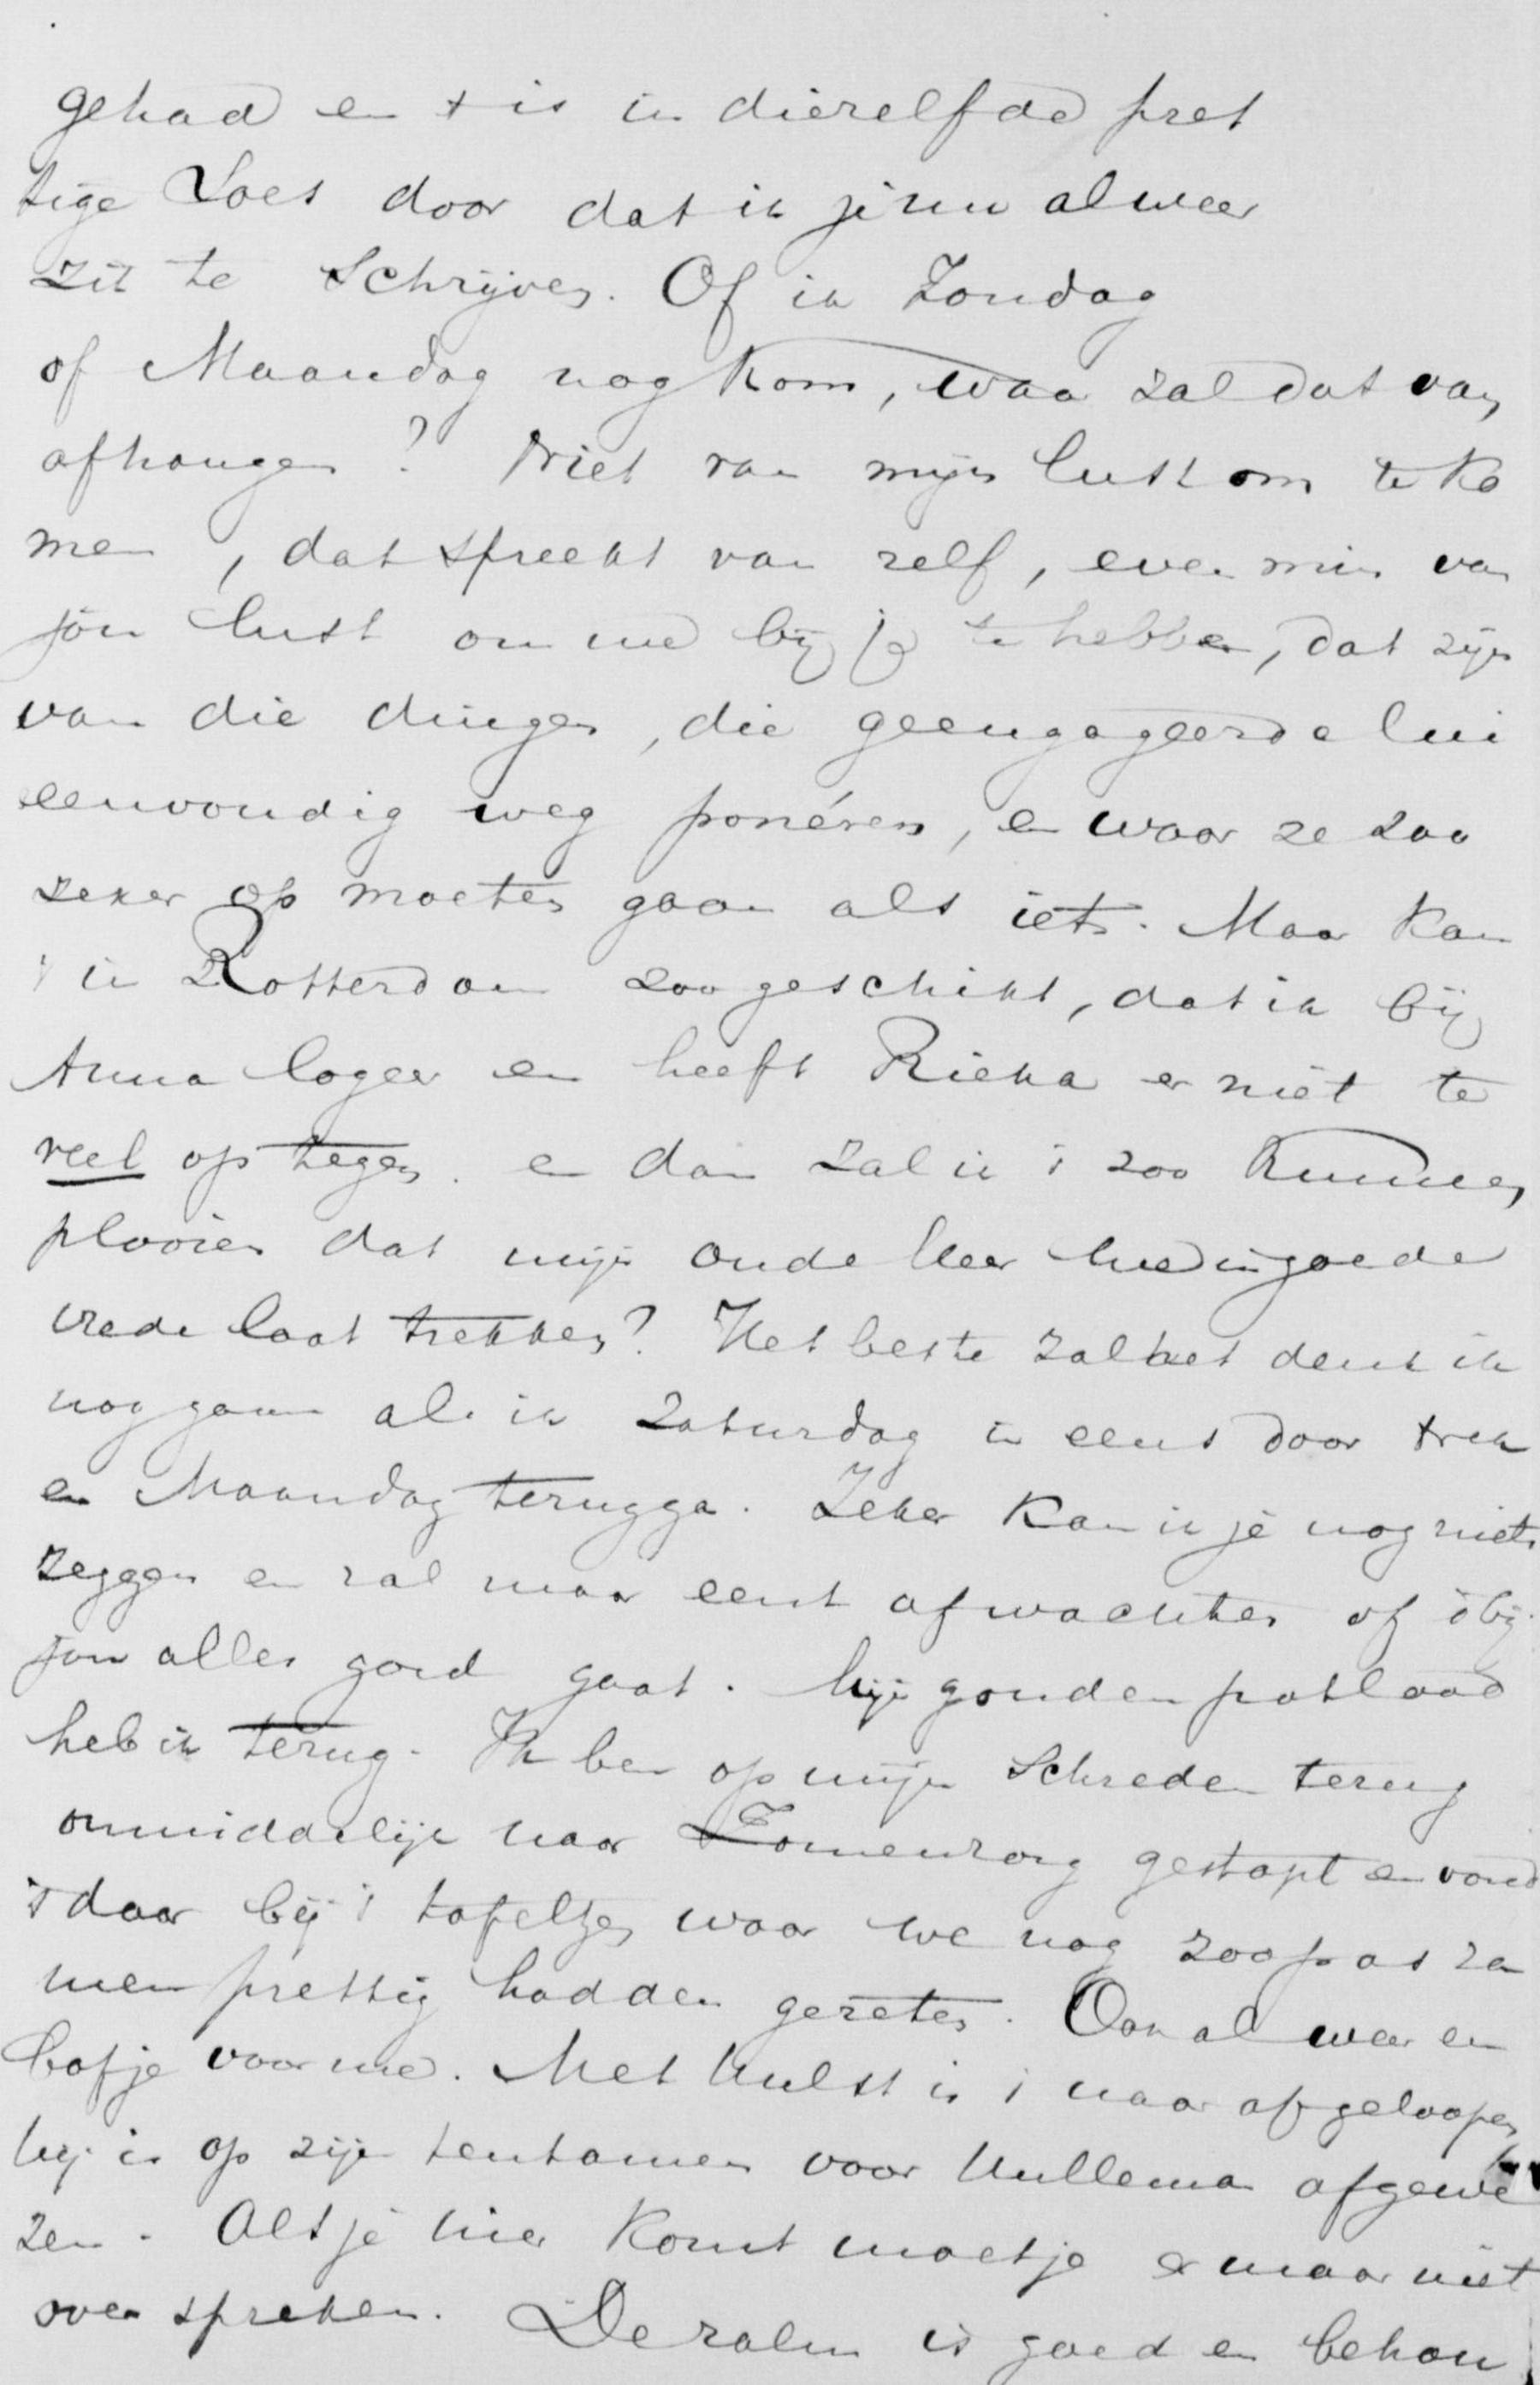 gehad en 't is in diezelfde pret
tige Roes door dat ik je nu alweer
zit te Schrijven. Of ik Zondag
of Maandag nog kom, waar zal dat van
afhangen? Niet van mijn lust om te ko
men, dat spreekt van zelf, evenmin van
jou lust om me bij je te hebben, dat zijn
van die dingen, die geengageerde lui
eenvoudig weg ponéren, en waar ze zoo
zeker op moeten gaan als iets. Maar kan
't in Rotterdam zoo geschikt, dat ik bij
Anna logeer en heeft Rieka er niet te
veel op tegen. en dan zal ik 't zoo kunnen
plooien dat mijn oude Heer me in goede
vrede laat trekken? Het beste zal het denk ik
nog gaan als ik Zaturdag in eens door trek
en Maandag terugga. Zeker kan ik je nog niets
zeggen en zal maar eerst afwachten of 't bij
jou alles goed gaat. Mijn gouden potlood
heb ik terug. Ik ben op mijn Schreden terug
onmiddelijk naar Zomerzorg gestapt en vond
't daar bij 't tafeltje, waar we nog zoo pas za
men prettig hadden gezeten. Ook al weer een
bofje voor me. Met Hulst is 't naar afgeloopen
hij is op zijn tentamen voor Hullema afgewe
zen. Als je hier komt moet je er maar niet
over spreken. De zalm is goed en behou